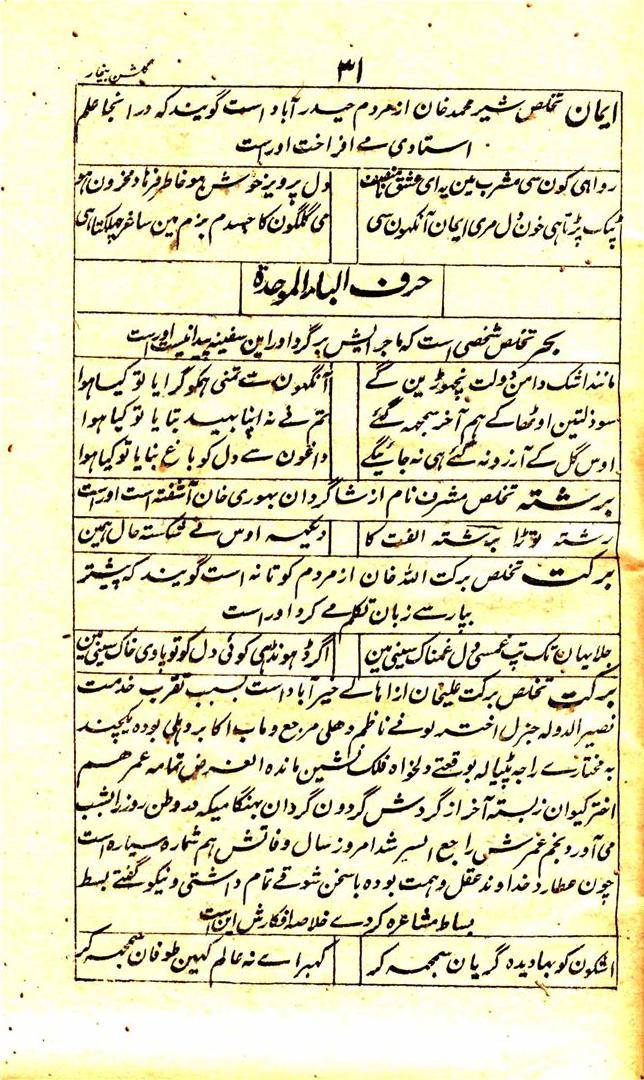 گلشن بیخار
۳۱
ایمان تخلص شیر محمد خان از مردم حیدرآباد است گویند که در انجا علم
استادی مے افراخت اوراست
رواہی کون سی مشرب مین یہ ای عشق
دل پرویز خوش ہو خاطر فرہاد محزون ہو
ٹپک پڑتا ہی خون دل مری ایمان آنکھون سی
می گلگون کا جسدم بزم مین ساغر چھلکتا ہی
حرف الباء الموحدة
بحر تخلص شخصی است کہ ماجرایش بر گرد اور این سفینہ پیدا نیست اوراست
مانند اشک دامن دولت نچھوڑین گے
آنکھون سے تمنی ہمکو گرایا تو کیا ہوا
سو ذلتین اوٹھا کے ہم آخر سمجھہ گئے
تم نے نہ اپنا بھید بتایا تو کیا ہوا
اوس گل کے آرزو نہ گئے ہی نہ جائیگے
داغون سے دل کو باغ بنایا تو کیا ہوا
برشتہ تخلص مشرف نام از شاگردان بھوری خان آشفتہ است اوراست
رشتہ توڑا برشتہ الفت کا
دیکہہ اوس نے شکستہ حال ہمین
برکت تخلص برکت اللہ خان از مردم کوتانہ است گویند کہ پیشتر
بپارسے زبان تکلم مے کرد اوراست
جلا بیان تک تپ غمسی دل غمناک سینی مین
اگر ڈہونڈہی کوئی دل کو تو پاوی خاک سینی مین
برکت تخلص برکت علیخان از اہالے خیرآباد است بسبب تقرب خدمت
نصیر الدولہ جنرل اختر لونے ناظم دھلی مرجع و ماب اکابر دہلی بودہ یکچند
بہ مختارے راجہ پٹیالہ بوقعتے دلخواہ فلک نشین ماندہ الغرض تمامہ عمر هم
اختر کیوان زیستہ آخر از گردش گردون گردان بہنگامیکہ در وطن روز را بشب
می آورد نجم عمرش راجع السیر شد امروز سال وفاتش هم شمارہ سیارہ است
چون عطارد خداوند عقل و ہمت بودہ با سخن شوقے تمام داشتی و نیکو گفتے بسط
بساط مشاعرہ کردے خلاصہ افکارش این است
اشکون کو بہا دیدہ گریان سمجہہ کر
گہبراے نہ عالم کہین طوفان سمجہہ کر